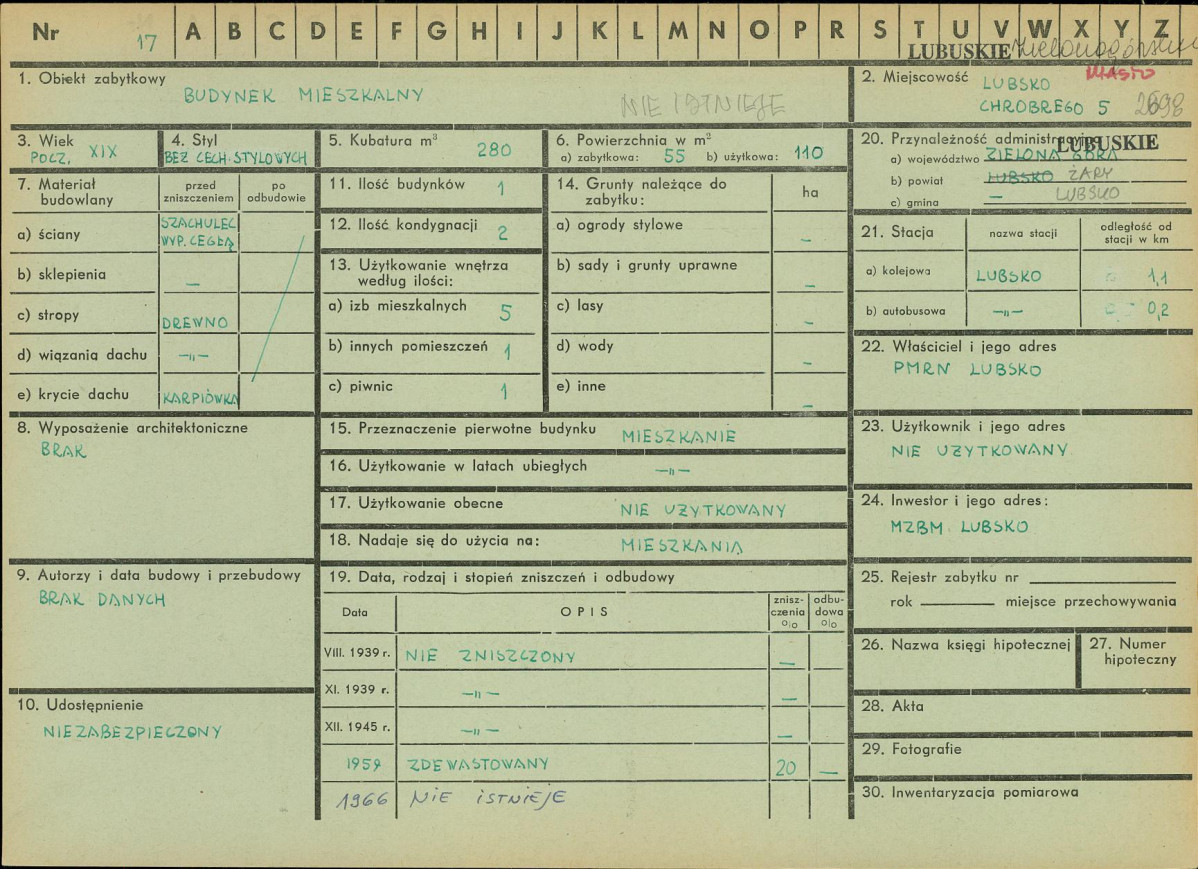 Nr 17 A B C D E F G H I J K L M N O P R S T U V W X Y Z
LUBUSKIE Zielonogórskie
1. Obiekt zabytkowy
BUDYNEK MIESZKALNY
NIE ISTNIEJE
2. Miejscowość MIASTO
LUBSKO
CHROBREGO 5
3. Wiek
POCZ. XIX
4. Styl
BEZ CECH STYLOWYCH
5. Kubatura m³ 280
6. Powierzchnia w m²
a) zabytkowa: 55 b) użytkowa: 110
7. Materiał budowlany
przed zniszczeniem
po odbudowie
a) ściany SZACHULEC
WYP. CEGŁĄ
b) sklepienia —
c) stropy DREWNO
d) wiązania dachu —„—
e) krycie dachu KARPIÓWKA
8. Wyposażenie architektoniczne
BRAK
9. Autorzy i data budowy i przebudowy
BRAK DANYCH
10. Udostępnienie
NIEZABEZPIECZONY
11. Ilość budynków 1
12. Ilość kondygnacji 2
13. Użytkowanie wnętrza
według ilości:
a) izb mieszkalnych 5
b) innych pomieszczeń 1
c) piwnic 1
14. Grunty należące do
zabytku:
ha
a) ogrody stylowe —
b) sady i grunty uprawne —
c) lasy —
d) wody —
e) inne —
15. Przeznaczenie pierwotne budynku MIESZKANIE
16. Użytkowanie w latach ubiegłych —„—
17. Użytkowanie obecne NIE UŻYTKOWANY
18. Nadaje się do użycia na: MIESZKANIA
19. Data, rodzaj i stopień zniszczeń i odbudowy
Data OPIS znisz-czenia o|o odbu-dowa o|o
VIII. 1939 r. NIE ZNISZCZONY —
XI. 1939 r. —„— —
XII. 1945 r. —„— —
1959 ZDEWASTOWANY 20 —
1966 NIE ISTNIEJE
20. Przynależność administracyjna
LUBUSKIE
a) województwo ZIELONA GÓRA
b) powiat LUBSKO ŻARY
c) gmina — LUBSKO
21. Stacja
nazwa stacji
odległość od
stacji w km
a) kolejowa LUBSKO 1,1
b) autobusowa —„— 0,2
22. Właściciel i jego adres
PMRN LUBSKO
23. Użytkownik i jego adres
NIE UŻYTKOWANY
24. Inwestor i jego adres:
MZBM. LUBSKO
25. Rejestr zabytku nr
rok miejsce przechowywania
26. Nazwa księgi hipotecznej
27. Numer
hipoteczny
28. Akta
29. Fotografie
30. Inwentaryzacja pomiarowa